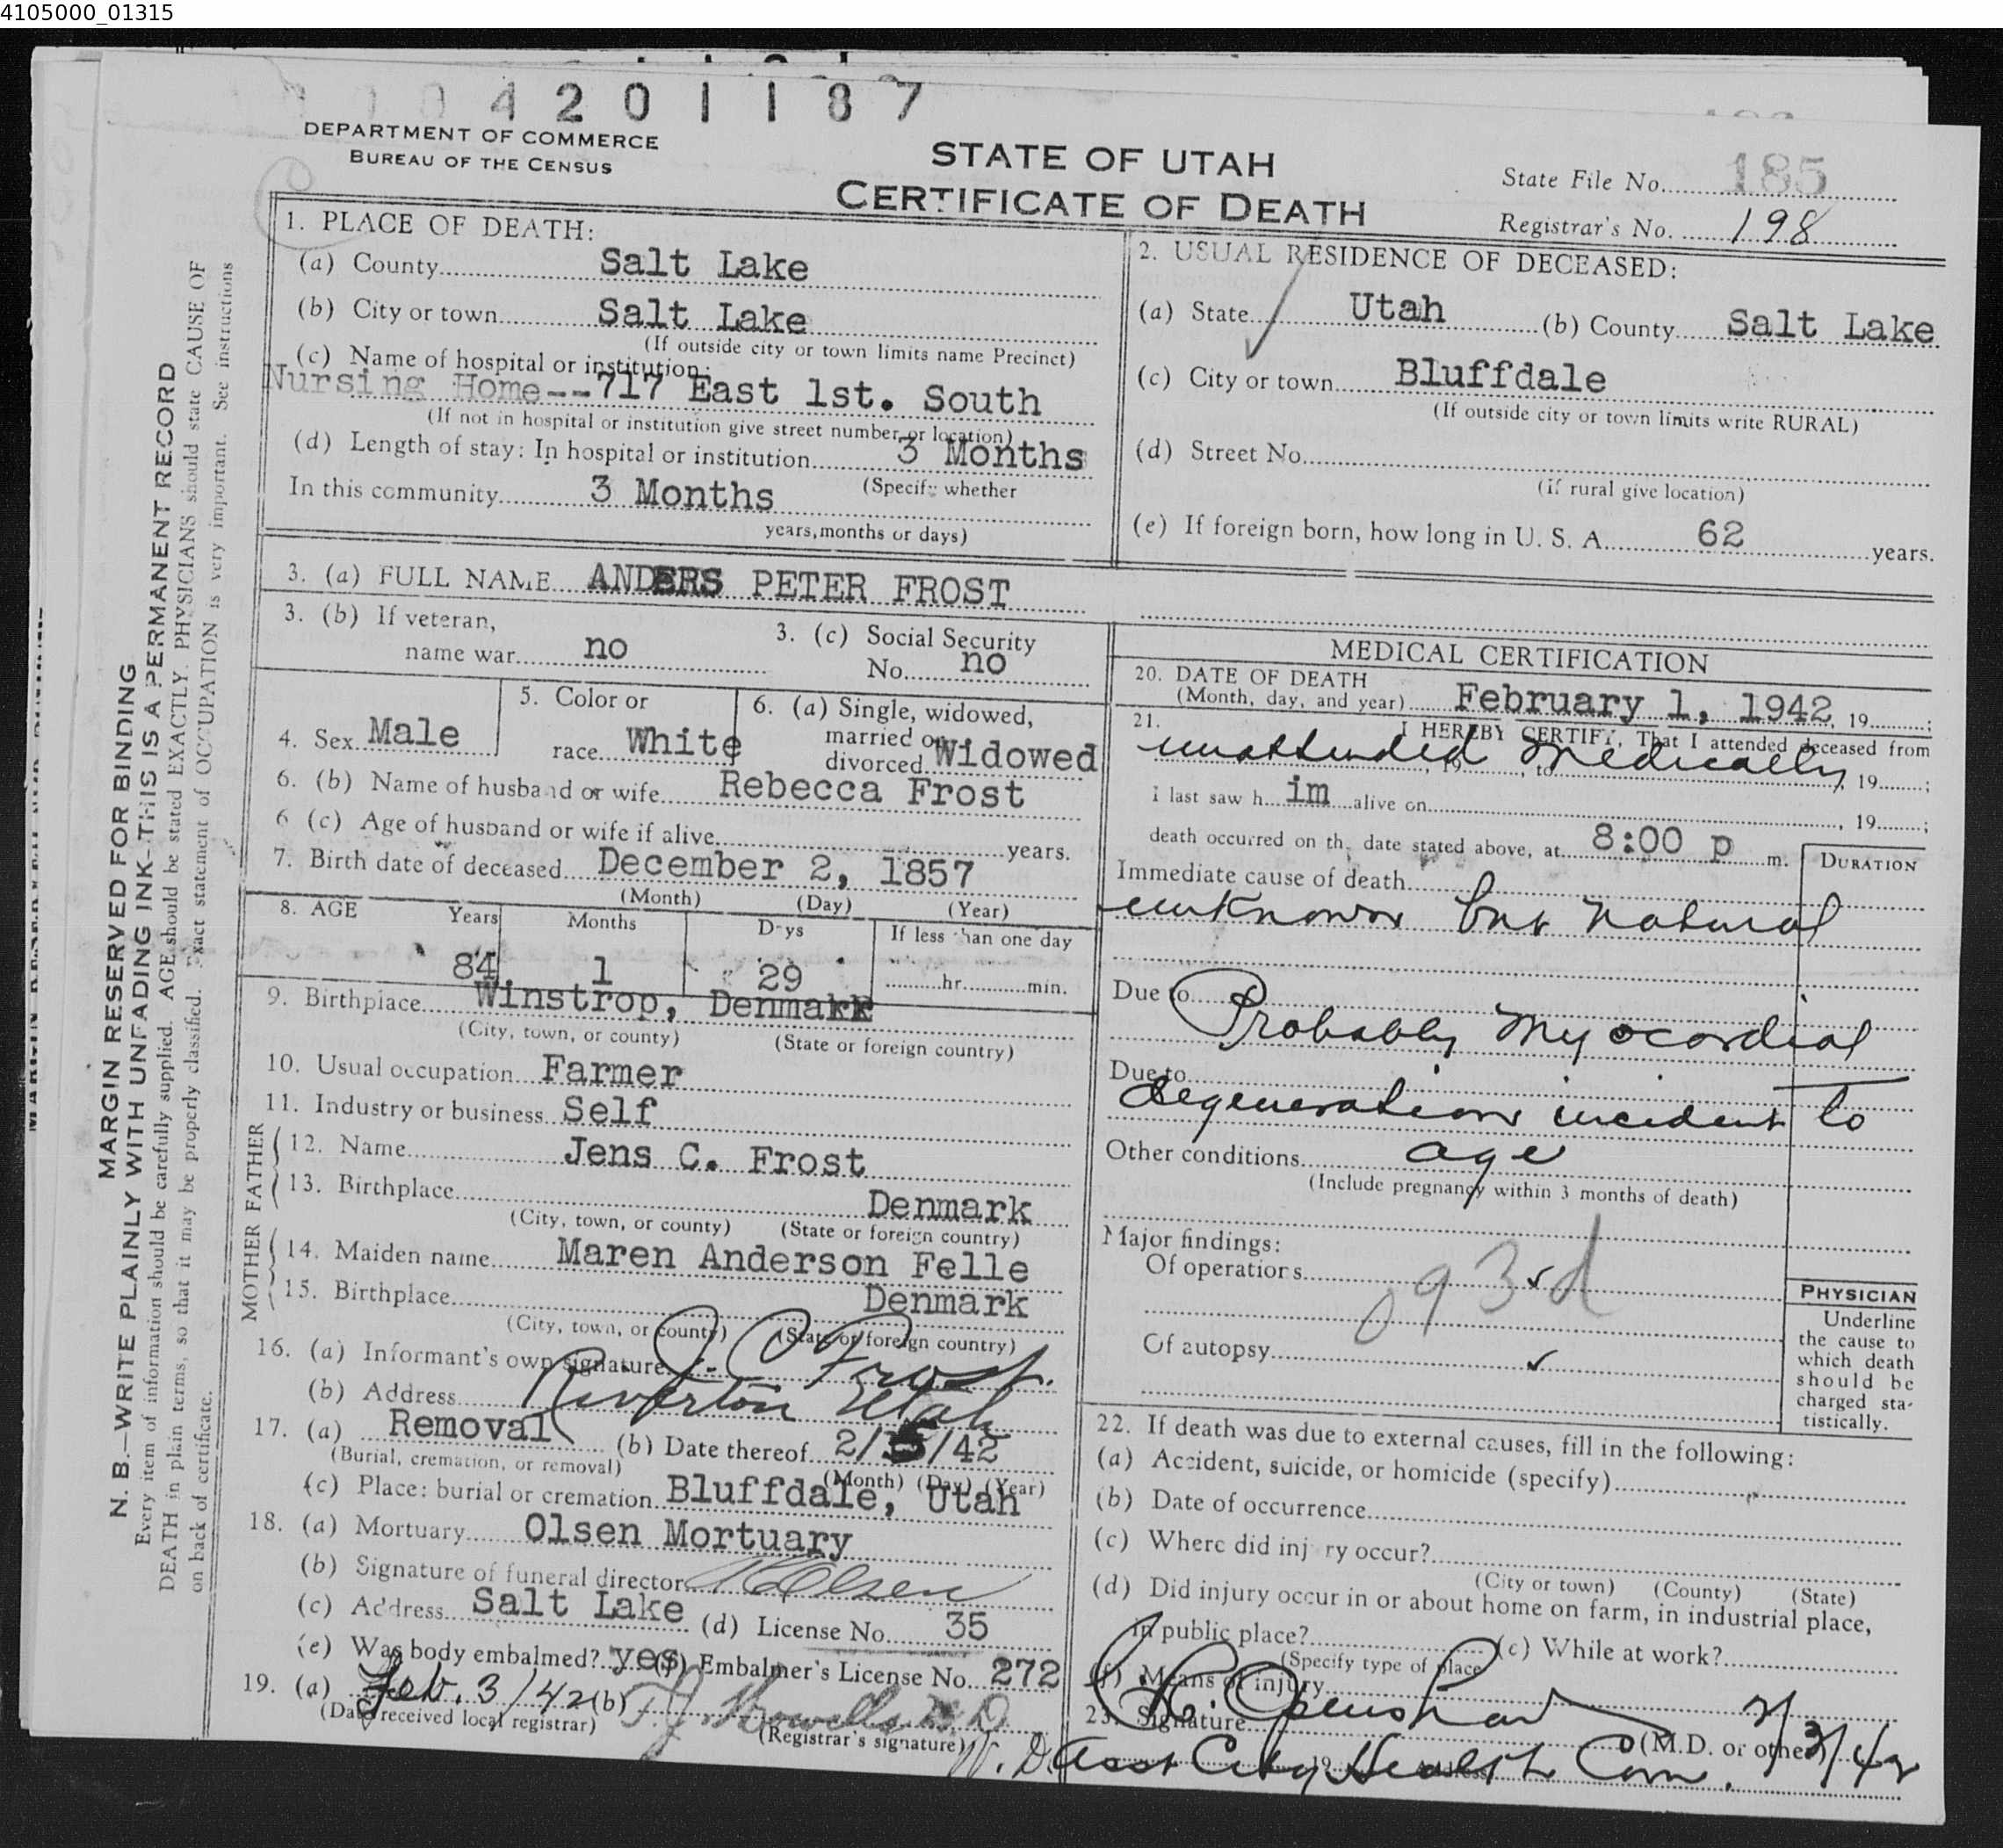 4105000_01315
4201187
DEPARTMENT OF COMMERCE
BUREAU OF THE CENSUS
STATE OF UTAH
CERTIFICATE OF DEATH
State File No. 185
Registrar's No. 198
1. PLACE OF DEATH:
(a) County Salt Lake
(b) City or town Salt Lake
(If outside city or town limits name Precinct)
(c) Name of hospital or institution:
Nursing Home--717 East 1st. South
(If not in hospital or institution give street number or location)
(d) Length of stay: In hospital or institution 3 Months
(Specify whether
In this community 3 Months
years, months or days)
2. USUAL RESIDENCE OF DECEASED:
(a) State Utah (b) County Salt Lake
(c) City or town Bluffdale
(If outside city or town limits write RURAL)
(d) Street No.
(if rural give location)
(e) If foreign born, how long in U. S. A. 62 years.
3. (a) FULL NAME ANDERS PETER FROST
3. (b) If veteran,
name war no
3. (c) Social Security
No. no
4. Sex Male
5. Color or
race White
6. (a) Single, widowed,
married or
divorced Widowed
6. (b) Name of husband or wife Rebecca Frost
6 (c) Age of husband or wife if alive years.
7. Birth date of deceased December 2, 1857
(Month) (Day) (Year)
8. AGE Years Months Days If less than one day
84 1 29 hr. min.
9. Birthplace Winstrop, Denmark
(City, town, or county) (State or foreign country)
10. Usual occupation Farmer
11. Industry or business Self
FATHER
12. Name Jens C. Frost
13. Birthplace Denmark
(City, town, or county) (State or foreign country)
MOTHER
14. Maiden name Maren Anderson Felle
15. Birthplace Denmark
(City, town, or county) (State or foreign country)
16. (a) Informant's own signature J. C. Frost.
(b) Address Riverton Utah
17. (a) Removal (b) Date thereof 2/ /42
(Burial, cremation, or removal) (Month) (Day) (Year)
(c) Place: burial or cremation Bluffdale, Utah
18. (a) Mortuary Olsen Mortuary
(b) Signature of funeral director Olsen
(c) Address Salt Lake (d) License No. 35
(e) Was body embalmed? yes (f) Embalmer's License No. 272
19. (a) Feb. 3/42 (b) T.J. Howells M.D.
(Date received local registrar) (Registrar's signature)
MEDICAL CERTIFICATION
20. DATE OF DEATH
(Month, day, and year) February 1, 1942, 19 ;
21. I HEREBY CERTIFY, That I attended deceased from
unattended medically, 19 , to , 19 ;
I last saw h im alive on , 19 ;
death occurred on the date stated above, at 8:00 p m.
DURATION
Immediate cause of death
unknown but natural
Due to
Probably Myocordial
Due to
degeneration incident to
Other conditions age
(Include pregnancy within 3 months of death)
Major findings:
Of operations
093d
Of autopsy
PHYSICIAN
Underline
the cause to
which death
should be
charged sta-
tistically.
22. If death was due to external causes, fill in the following:
(a) Accident, suicide, or homicide (specify)
(b) Date of occurrence
(c) Where did injury occur?
(City or town) (County) (State)
(d) Did injury occur in or about home on farm, in industrial place,
in public place? (e) While at work?
(Specify type of place)
(f) Means of injury
23. Signature Openshaw (M.D. or other) 2/3/42
Asst City Health Com.
MARGIN RESERVED FOR BINDING
N. B.—WRITE PLAINLY WITH UNFADING INK—THIS IS A PERMANENT RECORD
Every item of information should be carefully supplied. AGE should be stated EXACTLY. PHYSICIANS should state CAUSE OF
DEATH in plain terms, so that it may be properly classified. Exact statement of OCCUPATION is very important. See instructions
on back of certificate.